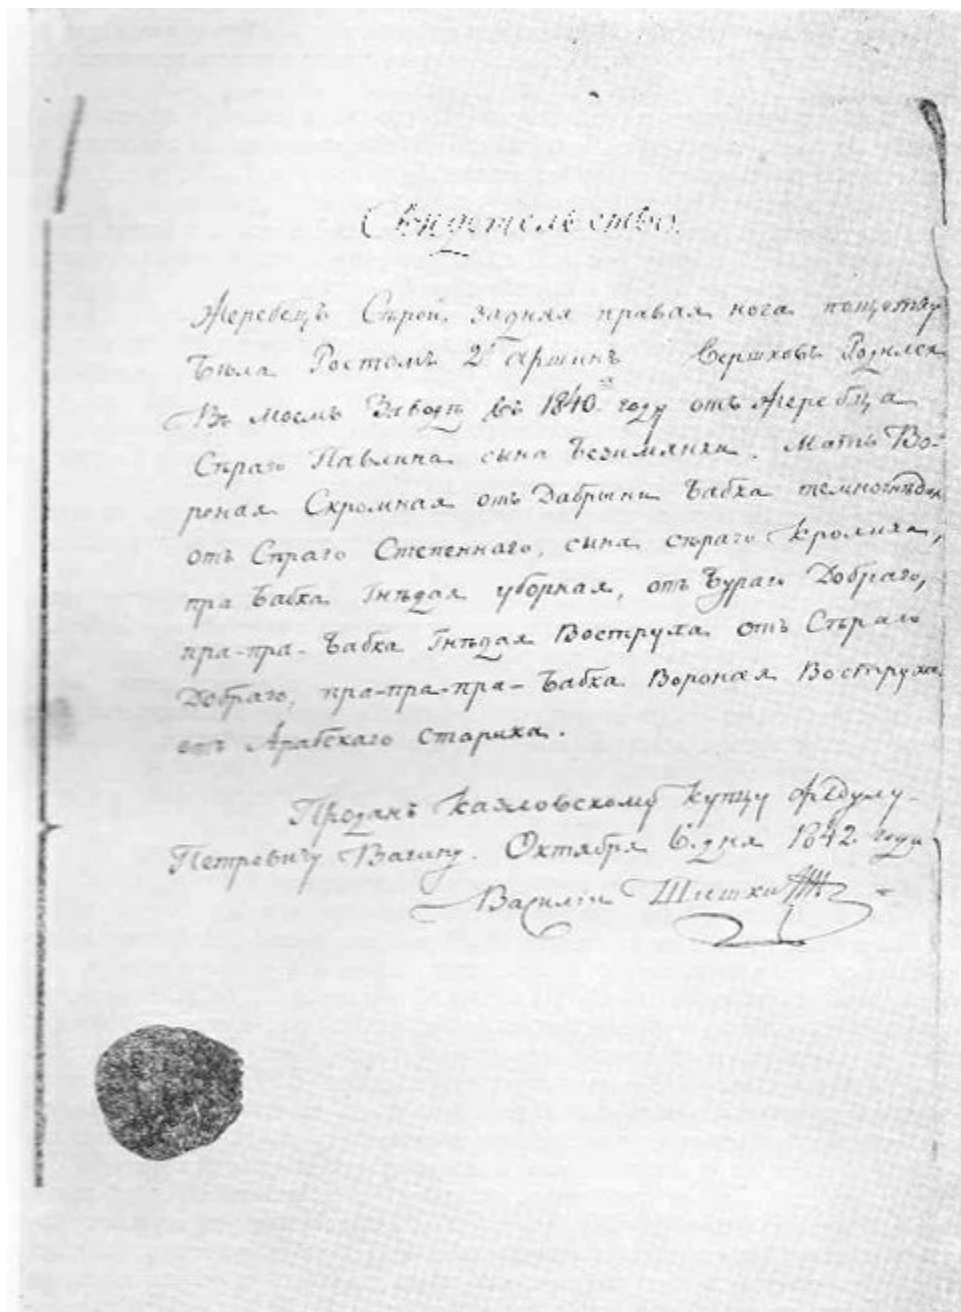 Свидетельство.
Жеребецъ Сѣрой, задняя правая нога пощотку
бѣла Ростомъ 2 аршинъ вершковъ Родился
Въ моемъ Заводѣ въ 1840 году отъ жеребца
Сѣраго Павлина сына Безимянки. Мать Во-
роная Скромная от Дабрыни бабка темногнѣдая
отъ Сѣраго Степеннаго, сына сѣраго Кролика,
пра бабка Гнѣдая уборная, отъ Бураго Добраго,
пра-пра-бабка Гнѣдая Воструха отъ Сѣраго
Добраго, пра-пра-пра-бабка Вороная Воструха
отъ Арабскаго старика.
Проданъ Козловскому купцу Федулу
Петровичу Вагину. Октября 6. дня 1842. года
Василии Шишкин